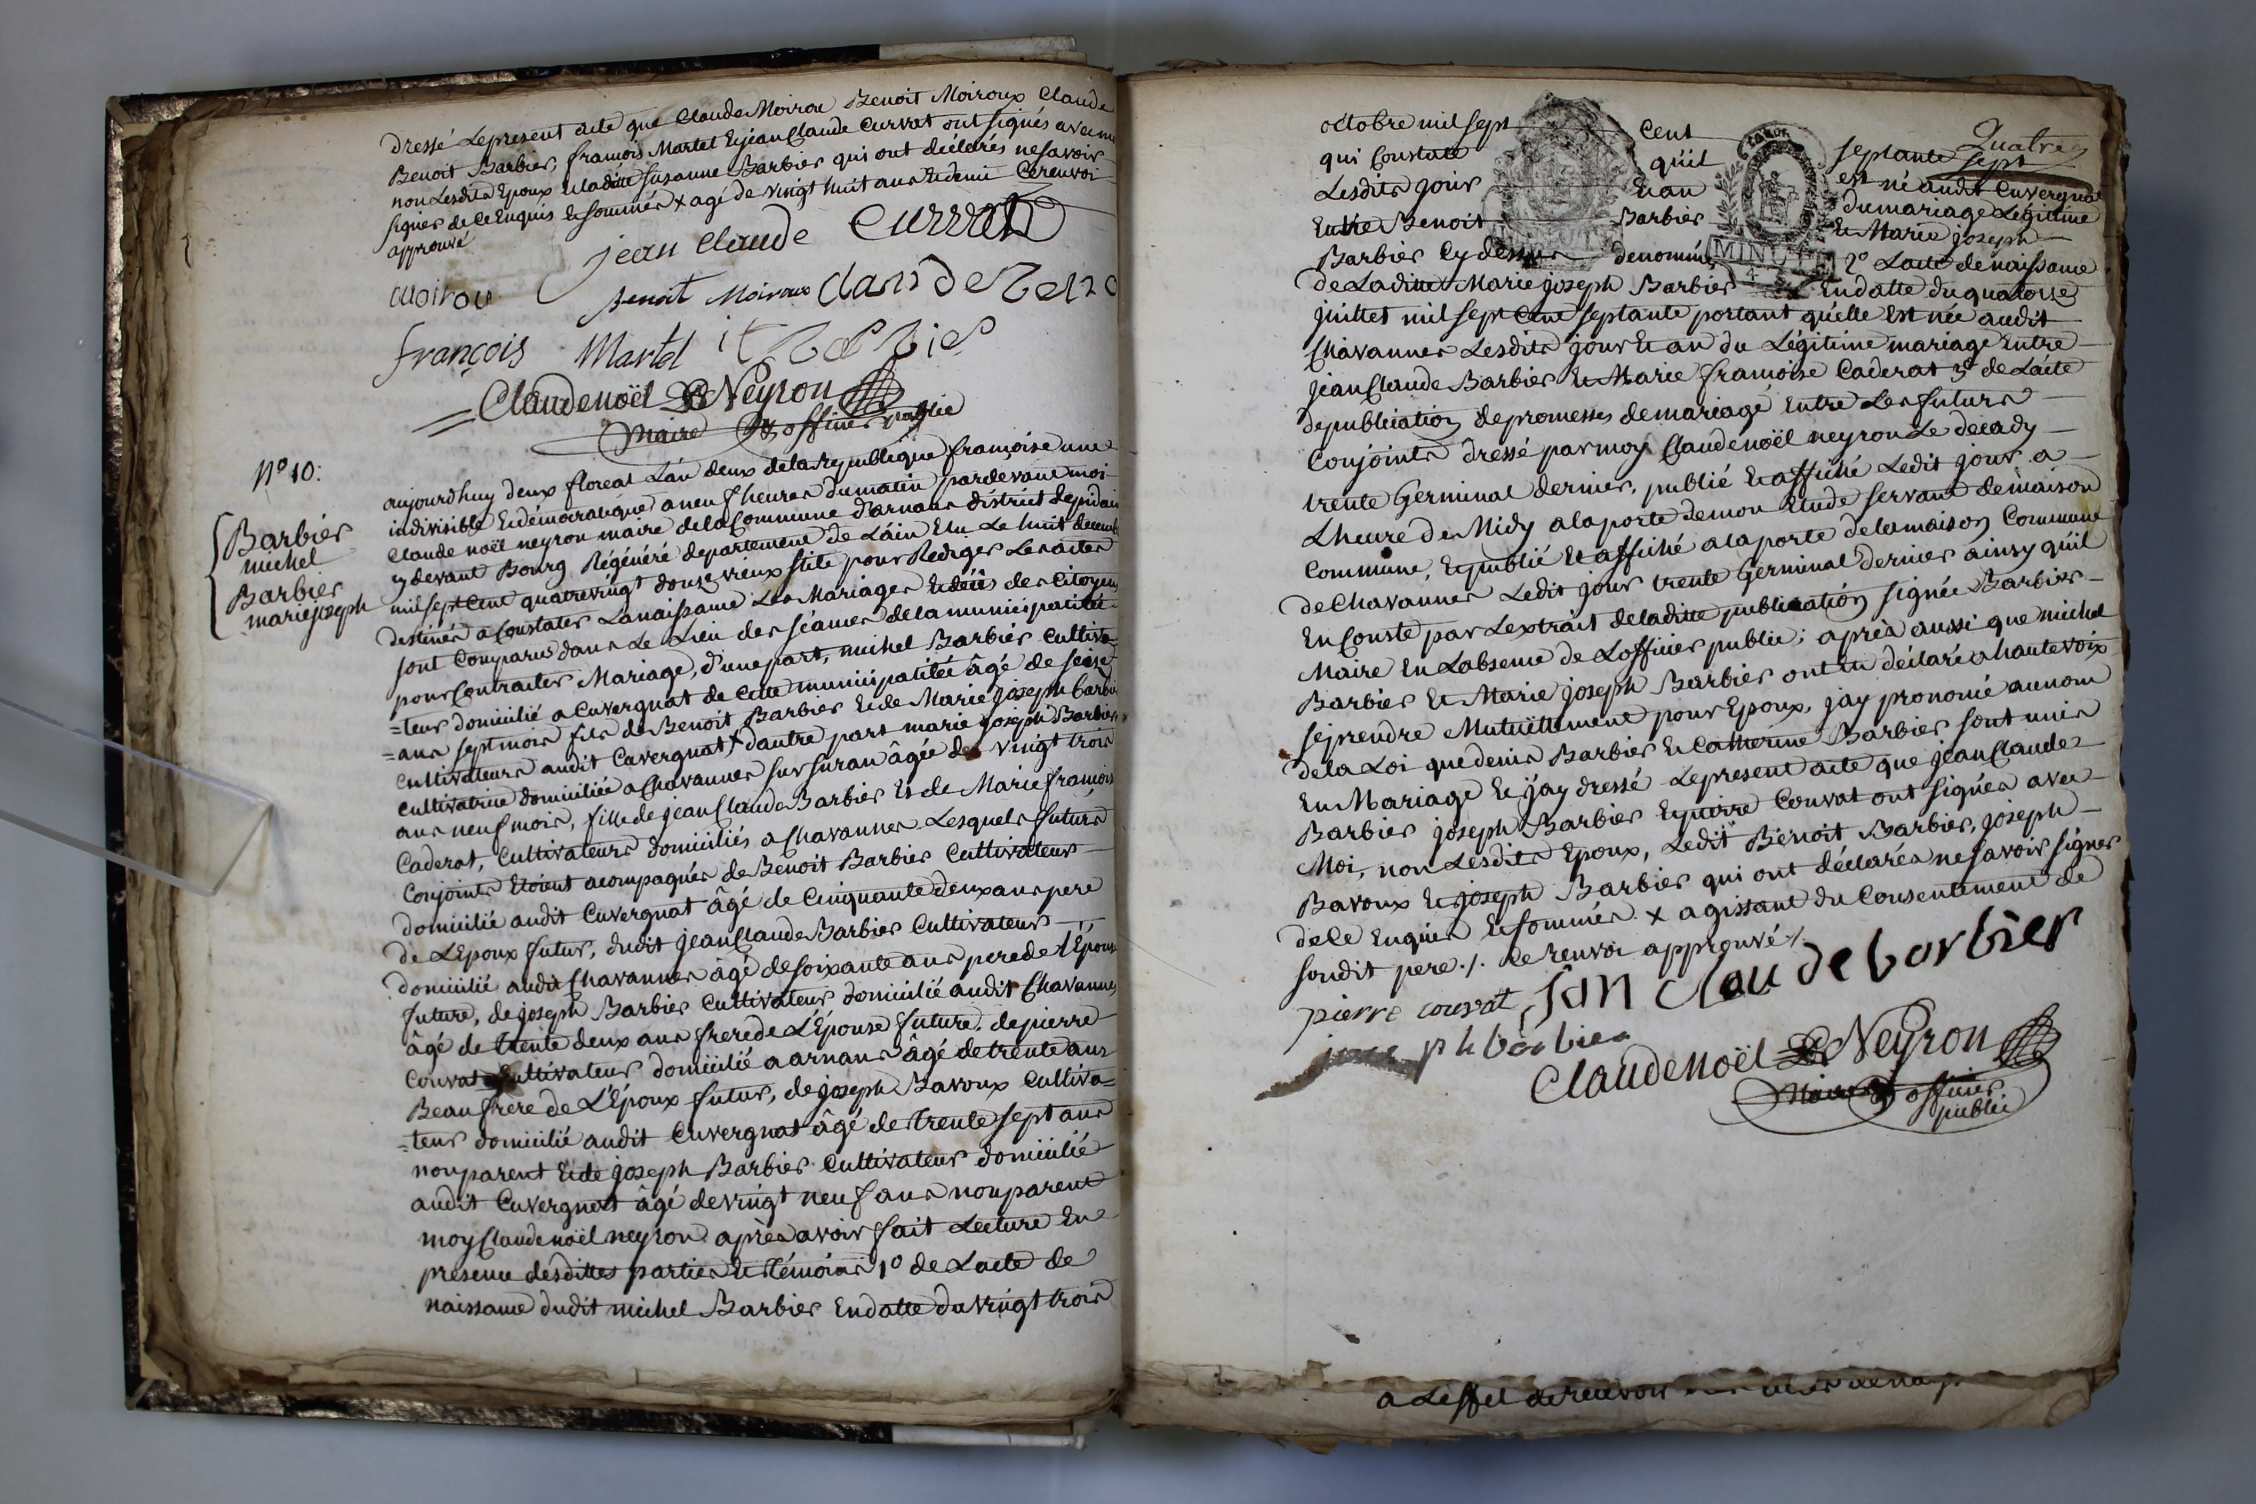 dressé Lepresent acte que Claude Moirou Benoit Moiroux Claude
Benoit Barbier, françois Martel Et jean Claude Curvat ont signés avec moi
non Lesdits Epoux Et laditte Susanne Barbier qui ont déclarés ne savoir
signer de Ce Enquis Et sommés x agé de vingt huit ans et demi Ce renvoi
approuvé
jean Claude Curvat
Moirou
Benoit Moiroux
françois Martel
Claudenoël Neyron
Maire & officier public
N° 10:
Barbier
michel
Barbier
marie joseph
aujourdhuy deux floreal L'an deux de la republique françoise une
indivisible Et démocratique a neuf heures du matin pardevant moi
Claude noël neyron maire de la Commune d'arnans district depidain
cy devant Bourg Régénéré departement de L'ain Elu Le huit decembre
mil sept Cent quatrevingt douze vieux stile pour Rediger Les actes
destinés a Constater La naissance Les Mariages Et décès des Citoyens
sont Comparus dans Le Lieu des séances de la municipalité
pour Contracter Mariage, d'une part, michel Barbier Cultiva-
=teur domicilié a Cuvergnat de Cette municipalité âgé de seize
=ans sept mois fils de Benoit Barbier Et de Marie joseph barbier
Cultivateurs audit Cuvergnat x dautre part marie joseph Barbier
Cultivatrice domiciliée a Chavannes sur suran âgée de vingt trois
ans neuf mois, fille de jean Claude Barbier Et de Marie françoise
Caderat, Cultivateurs domiciliés a Chavannes Lesquels futurs
Conjoints Etoient acompagnés de Benoit Barbier Cultivateur
domicilié audit Cuvergnat âgé de Cinquante deux ans pere
de L'Epoux futur, dudit jean Claude Barbier Cultivateur
domicilié audit Chavannes âgé de soixante ans pere de l'Epouse
future, de joseph Barbier Cultivateur domicilié audit Chavannes
âgé de trente deux ans frere de L'Épouse future, de pierre
Convat Cultivateur domicilié a arnans âgé de trente ans
Beau frere de L'Époux futur, de joseph Bavoux Cultiva=
=teur domicilié audit Cuvergnat âgé de trente sept ans
non parent Et de joseph Barbier Cultivateur domicilié
audit Cuvergnat âgé de vingt neuf ans non parent
moy Claude noël neyron après avoir fait Lecture En
presence desdittes parties Et Témoins 1° de Lacte de
naissance dudit michel Barbier En datte du vingt trois
Quatre
octobre mil sept Cent septante sept
qui Constate qu'il est né audit Cuvergnat
Lesdits jour Et an du mariage Légitime
Entre Benoit Barbier Et Marie joseph
Barbier Cy dessus denommés 2° Lacte de naissance
MINUTE
4
de Laditte Marie joseph Barbier En datte du quatorze
juillet mil sept Cent septante portant qu'elle Est née audit
Chavannes Lesdits jour Et an du Légitime mariage Entre
jean Claude Barbier Et Marie françoise Caderat 3° de Lacte
de publication de promesses de mariage Entre Les futurs
Conjoints dressé par moy Claude noël neyron Le decady
trente Germinal dernier, publié Et affiché Ledit jour a
Lheure de Midy a la porte de mon Etude servant de maison
Commune, Et publié Et affiché a la porte de la maison Commune
de Chavannes Ledit jour trente Germinal dernier ainsy qu'il
En Conste par Lextrait de laditte publication signée Barbier
Maire En Labsence de Lofficier public; après aussi que michel
Barbier Et Marie joseph Barbier ont Eu déclaré a haute voix
se prendre Mutuellement pour Epoux, jay prononcé au nom
de la Loi que denis Barbier Et Catherine Barbier sont unis
En Mariage Et jay dressé Lepresent acte que jean Claude
Barbier joseph Barbier Et pierre Convat ont signés avec
Moi, non Lesdits Epoux, Ledit Benoit Barbier, joseph
Bavoux Et joseph Barbier qui ont déclarés ne savoir signer
de Ce Enquier Et sommés. x agissant du Consentement de
sondit pere ./. Ce renvoi approuvé ./.
pierre convat jan Claude barbier
joseph barbier
Claudenoël Neyron
Maire & officier
public
a Leffet de recevoir